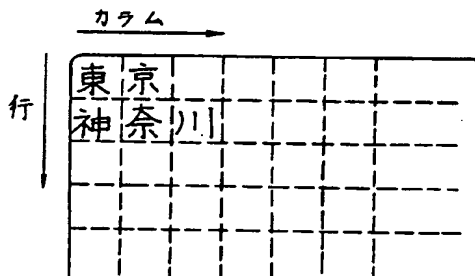 カラム
行
東京
神奈川